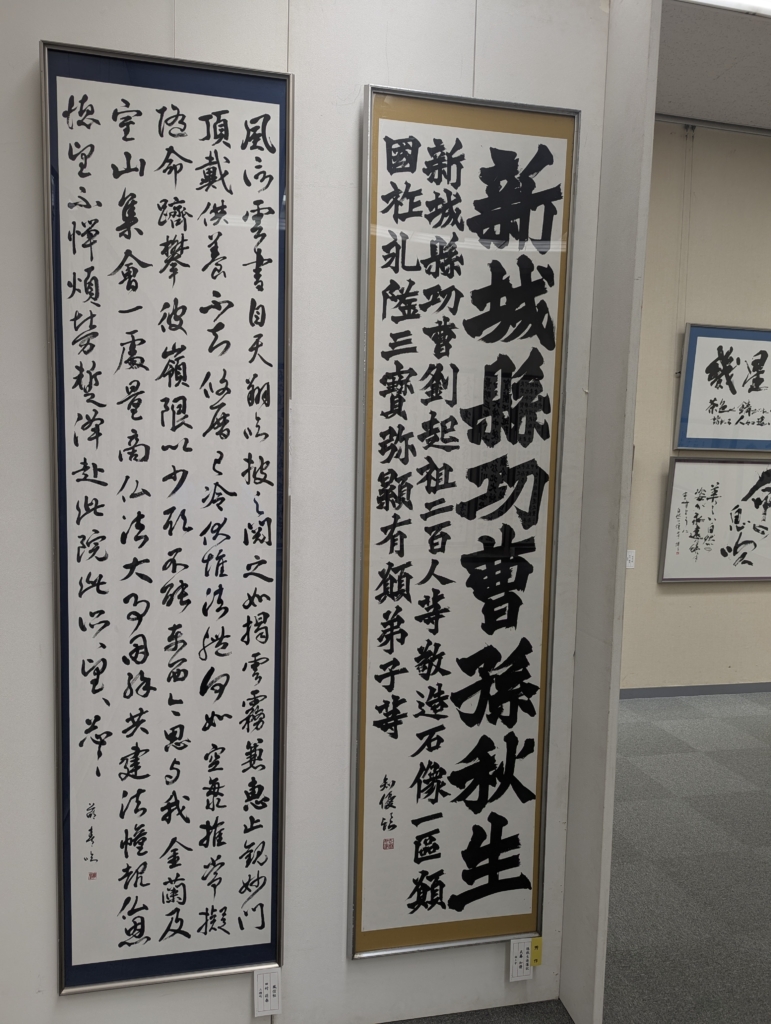 新城縣功曹孫秋生
新城縣功曹劉起祖二百人等敬造石像一區願
國祚永隆三寶弥顯有願弟子等
風信雲書自天翔臨披之閲之如掲雲霧兼恵止観妙門
頂戴供養不知攸厝已冷伏惟法體何如空海推常擬
随命躋攀彼嶺限以少願不能東西今思与我金蘭及
室山集會一處量商仏法大事因縁共建法幢報仏恩
徳望不憚煩勞蹔降赴此院此所望々忩々